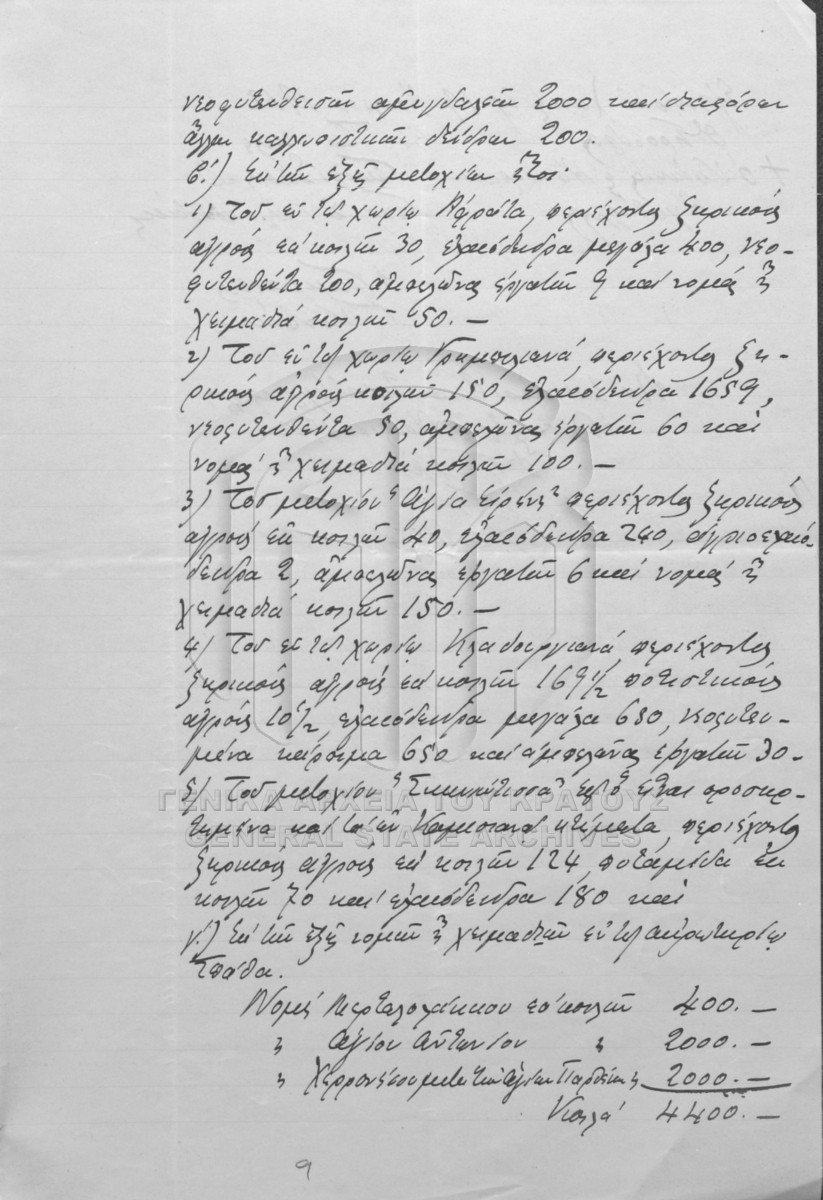 νεοφυτευθεισῶν ἀμυγδαλεῶν 2000 καὶ διαφόρων
ἄλλων καλλωπιστικῶν δένδρων 200.
β΄.) Ἐκ τῶν ἑξῆς μετοχίων ἤτοι·
1) Τοῦ ἐν τῷ χωρίῳ Ἀφράτα, περιέχοντος ξηρικούς
ἀγρούς ἐκ κοιλῶν 30, ἐλαιόδενδρα μεγάλα 400, νεο-
φυτευθέντα 200, ἀμπελῶνας ἐργατῶν 9 καὶ νομάς ἢ
χειμαδιά κοιλῶν 50.—
2) Τοῦ ἐν τῷ χωρίῳ Γριμπιλιανά, περιέχοντος ξη-
ρικούς ἀγρούς κοιλῶν 150, ἐλαιόδενδρα 1659,
νεοφυτευθέντα 50, ἀμπελῶνας ἐργατῶν 60 καὶ
νομάς ἢ χειμαδιά κοιλῶν 100.—
3) Τοῦ μετοχίου "Ἁγία Εἰρήνη" περιέχοντος ξηρικούς
ἀγρούς ἐκ κοιλῶν 40, ἐλαιόδενδρα 240, ἀγριοελαιό-
δενδρα 2, ἀμπελῶνας ἐργατῶν 6 καὶ νομάς ἢ
χειμαδιά κοιλῶν 150.—
4) Τοῦ ἐν τῷ χωρίῳ Κλαδουργιανά, περιέχοντος
ξηρικούς ἀγρούς ἐκ κοιλῶν 169 1/2 ποτιστικούς
ἀγρούς 10 1/2, ἐλαιόδενδρα μεγάλα 680, νεοφυτευ-
μένα κάρπιμα 650 καὶ ἀμπελῶνας ἐργατῶν 30-
5) Τοῦ μετοχίου " " ἐφ' ὃ εἶναι προσηρ-
τημένα καὶ τὰ ἐν Καμισιανά κτήματα, περιέχοντος
ξηρικούς ἀγρούς ἐκ κοιλῶν 124, ποταμίδα ἐκ
κοιλῶν 70 καὶ ἐλαιόδενδρα 180 καὶ
γ΄.) Ἐκ τῶν ἑξῆς νομῶν ἢ χειμαδιῶν ἐν τῷ ἀκρωτηρίῳ
Σπάθα.
Νομές ἐκ κοιλῶν 400.—
〃 Ἁγίου Ἀντωνίου 〃 2000.—
〃 Χερρονήσου μετὰ τῶν Ἁγίων 〃 2000.—
Κοιλά 4400.—
ΓΕΝΙΚΑ ΑΡΧΕΙΑ ΤΟΥ ΚΡΑΤΟΥΣ
GENERAL STATE ARCHIVES
9